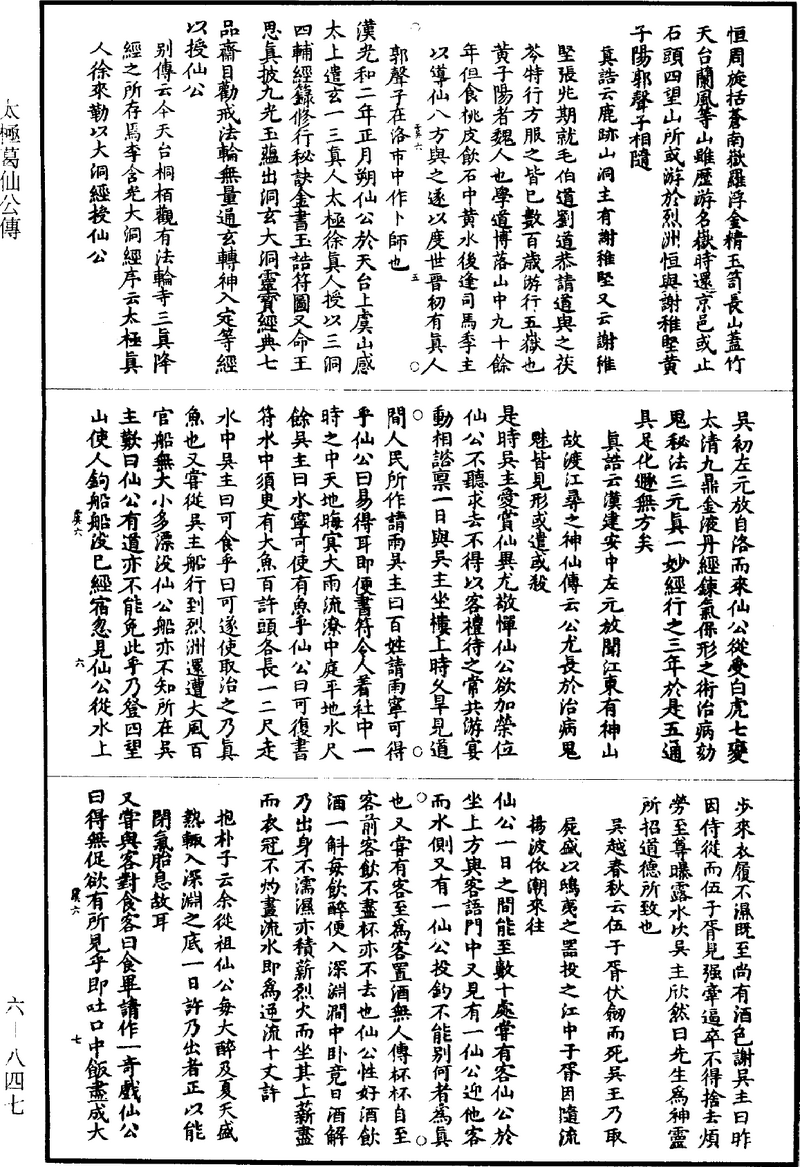 恒周旋括蒼南嶽羅浮金精玉笥長山蓋竹
天台蘭風等山雖歷游名嶽時還京邑或止
石頭四望山所或游於烈洲恒與謝稚堅黃
子陽郭聲子相隨
真誥云鹿跡山洞主有謝稚堅又云謝稚
堅張兆期就毛伯道劉道恭請道與之茯
苓特行方服之皆已數百歲游行五嶽也
黃子陽者魏人也學道博落山中九十餘
年但食桃皮飲石中黃水後逢司馬季主
以導仙八方與之遂以度世晉初有真人
郭聲子在洛市中作卜師也
虞六
五
漢光和二年正月朔仙公於天台上虞山感
太上遣玄一三真人太極徐真人授以三洞
四輔經籙修行秘訣金書玉誥符圖又命王
思真披九光玉蘊出洞玄大洞靈寶經典七
品齋目勸戒法輪無量通玄轉神入定等經
以授仙公
別傳云今天台桐栢觀有法輪寺三真降
經之所存焉李含光大洞經序云太極真
人徐來勒以大洞經授仙公
吳初左元放自洛而來仙公從受白虎七變
太清九鼎金液丹經鍊氣保形之術治病劾
鬼秘法三元真一妙經行之三年於是五通
具足化遯無方矣
真誥云漢建安中左元放聞江東有神山
故渡江尋之神仙傳云公尤長於治病鬼
魅皆見形或遣或殺
是時吳主愛賞仙異尤敬憚仙公欲加榮位
仙公不聽求去不得以客禮待之常共游宴
動相諮稟一日與吳主坐樓上時久旱見道
間人民所作請雨吳主曰百姓請雨寧可得
乎仙公曰易得耳即便書符令人著社中一
時之中天地晦冥大雨流潦中庭平地水尺
餘吳主曰水寧可使有魚乎仙公曰可復書
符水中須臾有大魚百許頭各長一二尺走
水中吳主曰可食乎曰可遂使取治之乃真
魚也又嘗從吳主船行到烈洲還遭大風百
官船無大小多漂沒仙公船亦不知所在吳
主歎曰仙公有道亦不能免此乎乃登四望
山使人鉤船船沒已經宿忽見仙公從水上
虞六
六
步來衣履不濕既至尚有酒色謝吳主曰昨
因侍從而伍子胥見强牽逼卒不得捨去煩
勞至尊曝露水次吳主欣然曰先生為神靈
所招道德所致也
吳越春秋云伍子胥伏劒而死吳王乃取
屍盛以鴟夷之器投之江中子胥因隨流
揚波依潮來往
仙公一日之間能至數十處嘗有客仙公於
坐上方與客語門中又見有一仙公迎他客
而水側又有一仙公投釣不能別何者為真
也又嘗有客至為客置酒無人傳杯杯自至
客前客飲不盡杯亦不去也仙公性好酒飲
酒一斛每飲醉便入深淵澗中卧竟日酒解
乃出身不濡濕亦積薪烈火而坐其上薪盡
而衣冠不灼盡流水即為逆流十丈許
抱朴子云余從祖仙公每大醉及夏天盛
熱輒入深淵之底一日許乃出者正以能
閉氣胎息故耳
又嘗與客對食客曰食畢請作一奇戲仙公
曰得無促欲有所見乎即吐口中飯盡成大
虞六
七
太極葛仙公傳
六－八四七